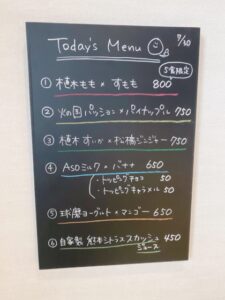 Today's Menu 7/30
5食限定
① 植木もも × すもも 800
② 火の国パッション × パイナップル 750
③ 植木すいか × 松橋ジンジャー 750
④ ASOミルク × バナナ 650
・トッピングチョコ 50
・トッピングキャラメル 50
⑤ 球磨ヨーグルト × マンゴー 650
⑥ 自家製 熊本シトラススカッシュ 450
ジュース